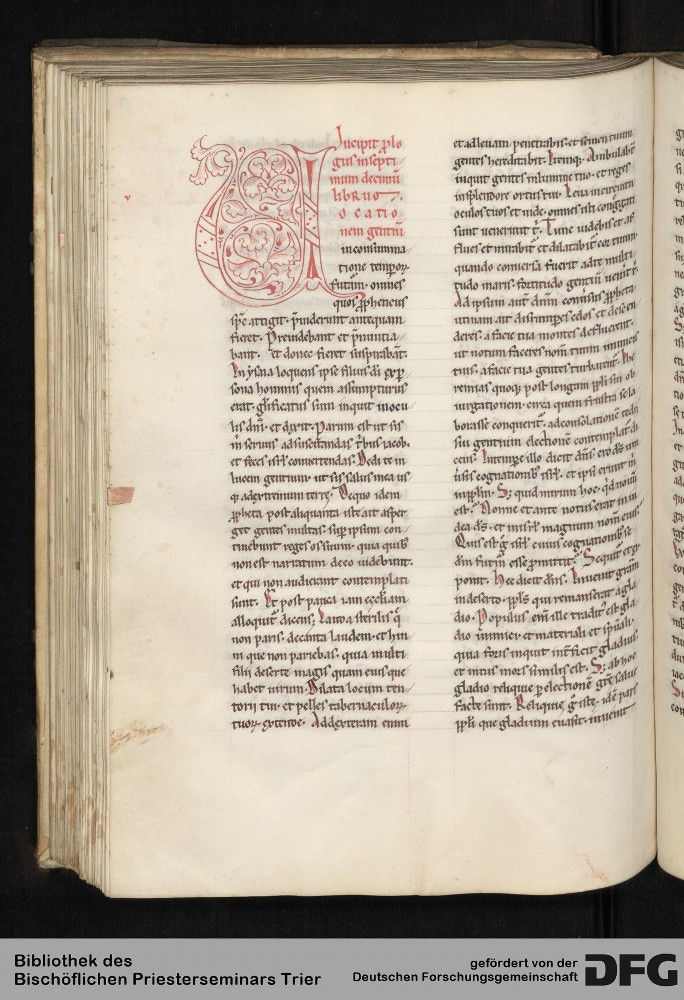 Incipit plo
gus in septi
mum decimū
librū
VOCATIO
nem gentiū
in consumma
tione tempoꝝ
futām. omnes
quos ꝓpheticus
spc attigit. p̄uiderunt antequam
fieret. Preuidebant et p̄nuntia
bant. et donec fieret suspirabāt.
In ysaia loquens ipse filius dī ex p̄
sona hominis quem assumpturus
erat. glificatus sum inquit in ocu
lis dn̄i. et dixit. Parum est ut sis
m̄ seruus ad suscitandas tbus iacob.
et feces isrl conuertendas. Dedi te in
lucem gentium. ut sis salus mea us
qꝫ ad extremum terre. De quo idem
ꝓpheta post aliquanta iste ait asper
get gentes multas. sup ipsum con
tinebunt reges os suum. quia quibꝰ
non est narratum de eo uiderunt.
et qui non audierant contemplati
sunt. Et post pauca iam eccl̄iam
alloquit᷑ dicens. Lauda sterilis q̄
non paris. decanta laudem. et hin
ni que non pariebas. quia multi
filii deserte magis quam eius que
habet uirum. Dilata locum ten
torii tui. et pelles tabernaculoꝝ
tuoꝝ extende. Ad dexteram enim
et ad leuam penetrabis. et semen tuum
gentes hereditabit. Itemqꝫ. Ambulabūt
inquit gentes in lumine tuo. et reges
in splendore ortus tui. Leua in circuitu
oculos tuos et uide. omnes isti congregati
sunt uenerunt t̄. Tunc uidebis et af
flues et mirabit᷑ et dilatabit᷑ cor tuum.
quando conuersa fuerit ad te multi
tudo maris. fortitudo gentiū uenerit t̄.
Ad ipsum aut dn̄m conuersus ꝓpheta.
utinam ait disrumperes celos et descen
deres. a facie tua montes defluerent.
ut notum fieres nom̄ tuum inimicis
tuis. a facie tua gentes turbarent᷑. Ihe
remias quoqꝫ post longam ppli sui ob
iurgationem. circa quem frustra se la
borasse conquerit᷑. ad consolationē tedii
sui gentium electionē contemplat᷑ di
cens. In tempore illo dicit dn̄s. ero dš uni
uersis cognationibꝰ isrl. et ipsi erunt m̄
in pplm̄. Sꝫ quid mirum hoc. qd nouū
est. Nonne et ante notus erat in iu
dea dš. et in isrl magnum nom̄ eius.
Quis est ḡ isrl cuius cognationibꝰ se
dm̄ futūm esse ꝓmittit. Sequit᷑ et ex
ponit. Hec dicit dn̄s. Inuenit grām
in deserto. ppls qui remanserat a gla
dio. Populus enī ille tradit᷑ est gla
dio inimici. et materiali et spūali.
quia foris inquit interficit gladius.
et intus mors similis est. Sꝫ ab hoc
gladio reliquie p electionē grē salue
facte sunt. Reliquie ḡ iste. idē pars
ppli que gladium euasit. inuenit
Bibliothek des
Bischöflichen Priesterseminars Trier
gefördert von der
Deutschen Forschungsgemeinschaft
DFG